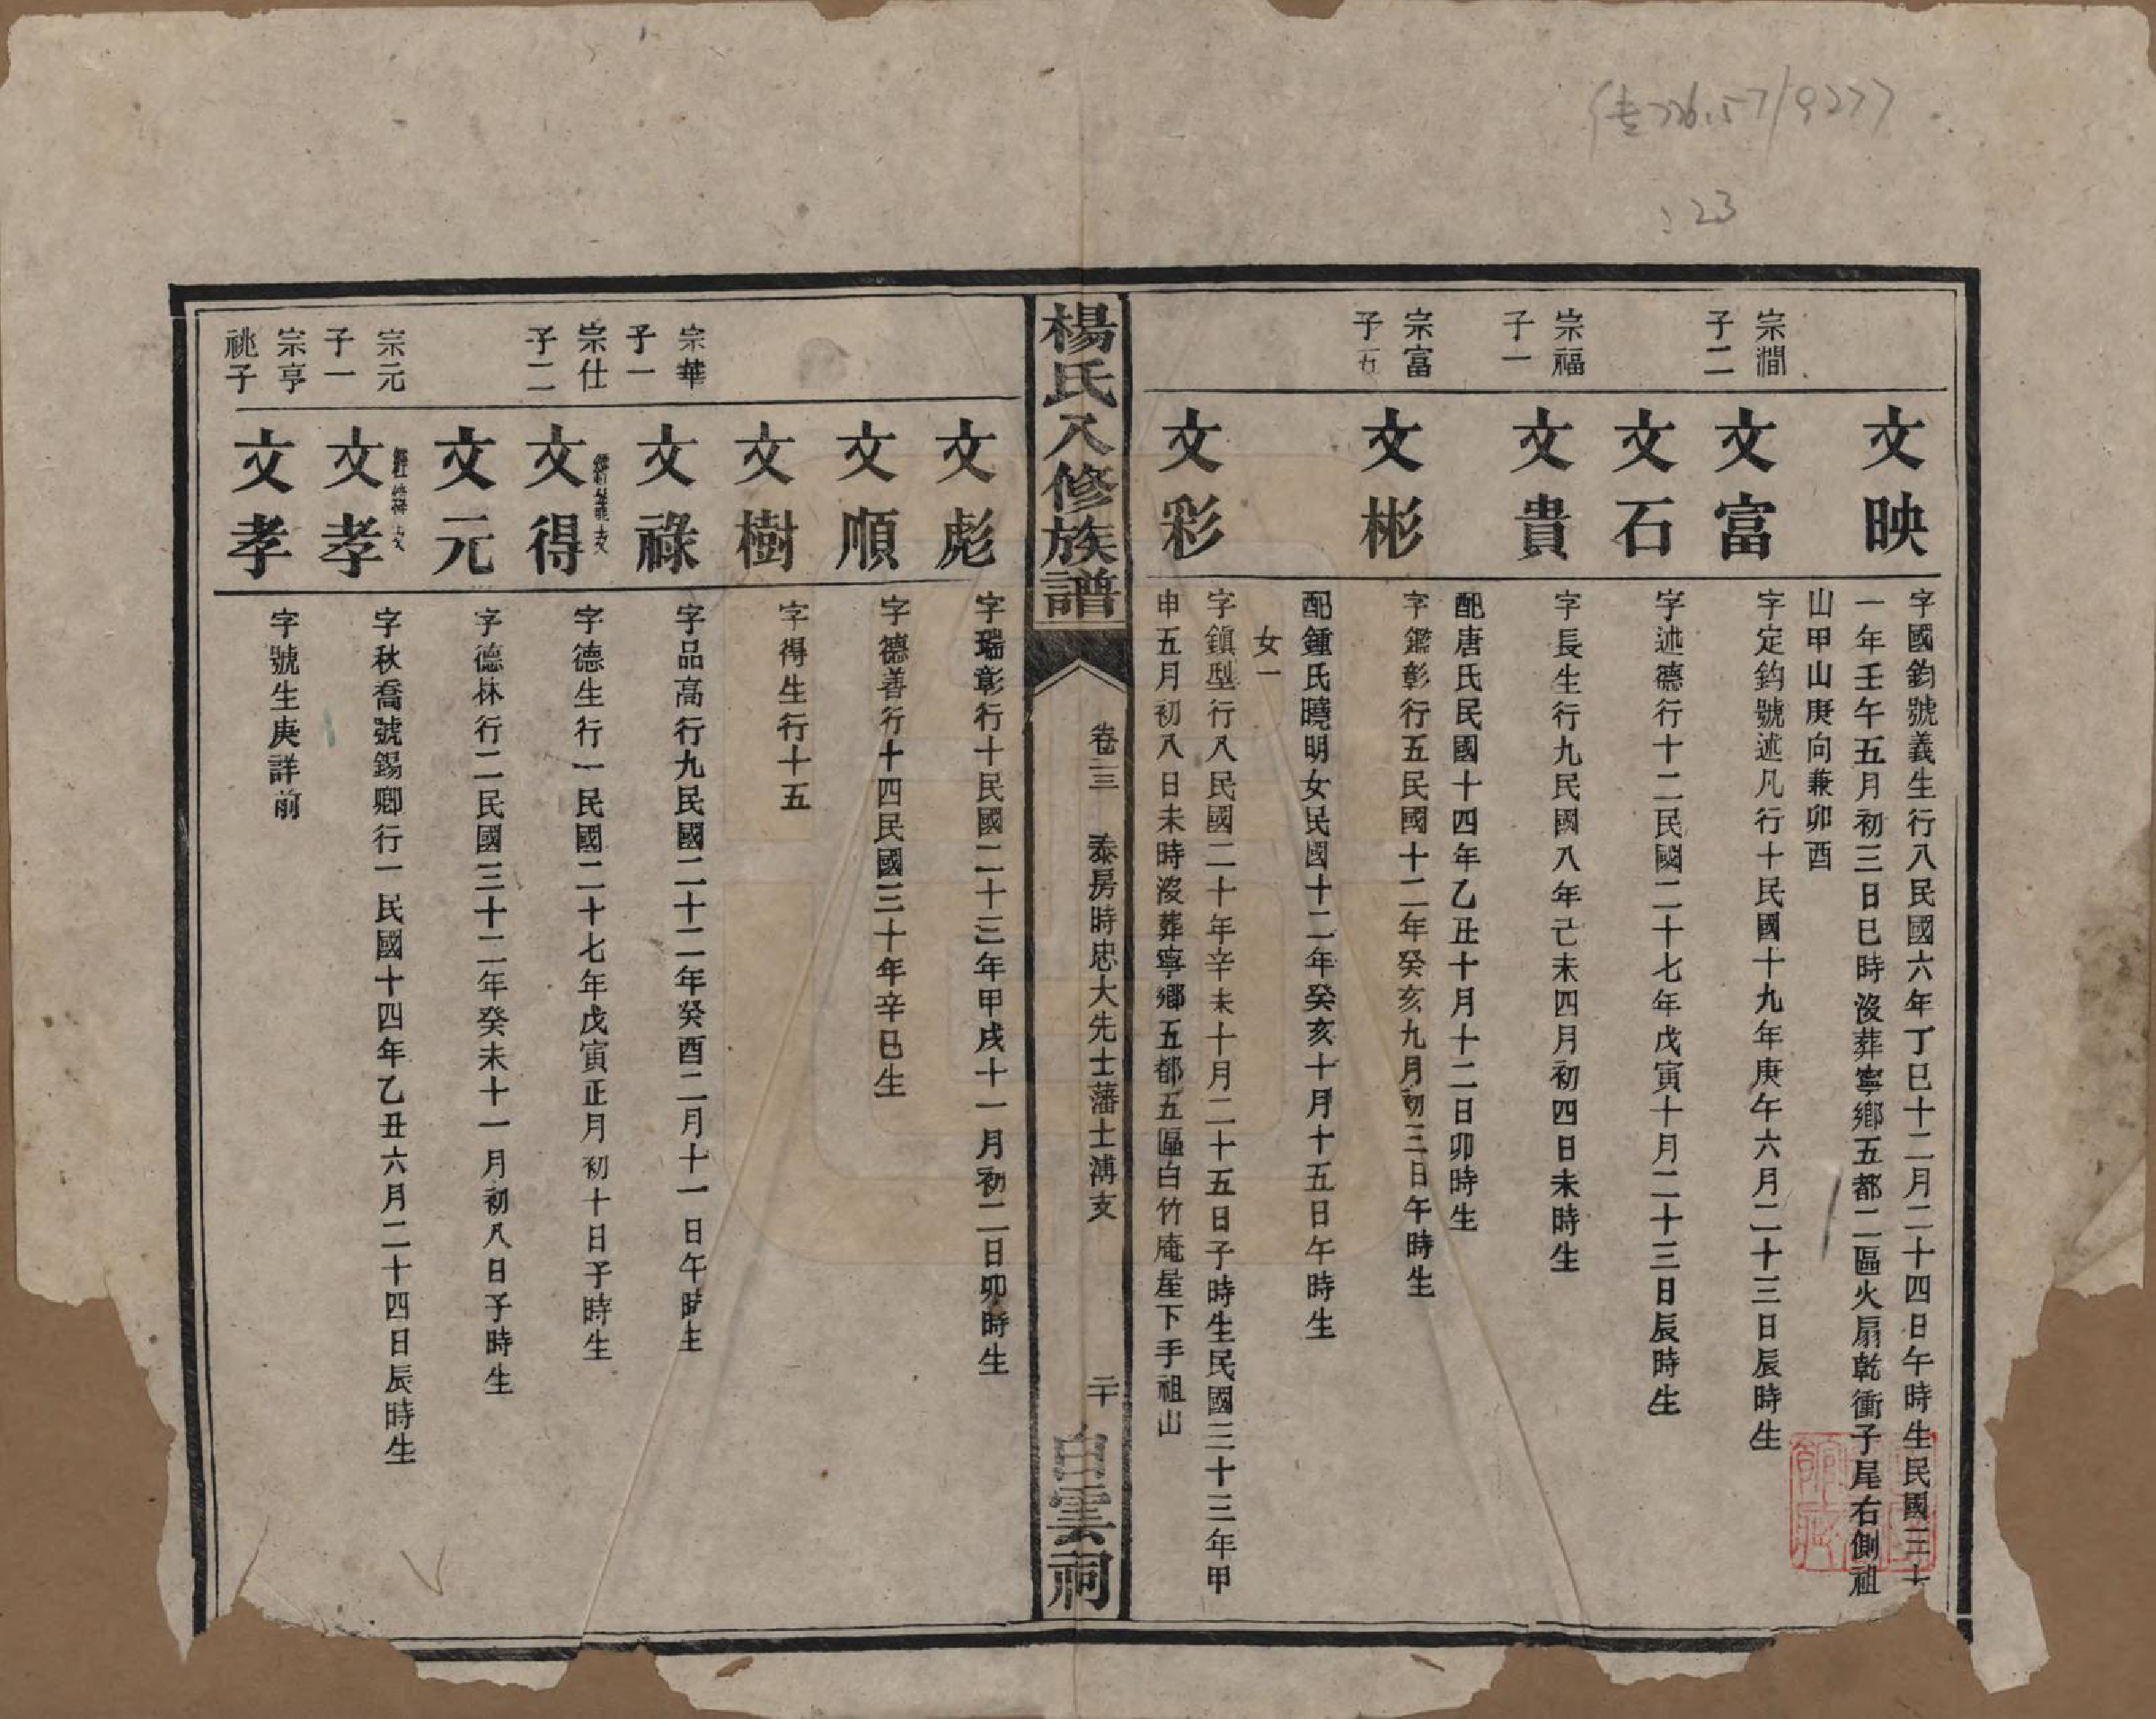 文映
字國鈞號義生行八民國六年丁巳十二月二十四日午時生民國三十
一年壬午五月初三日巳時沒葬寧鄉五都二區火扇乾衝子尾右側祖
山甲山庚向兼卯酉
宗澗
子二
文富
字定鈞號述凡行十民國十九年庚午六月二十三日辰時生
文石
字述德行十二民國二十七年戊寅十月二十三日辰時生
宗福
子一
文貴
字長生行九民國八年己未四月初四日未時生
配唐氏民國十四年乙丑十月十二日卯時生
宗富
子五
文彬
字鑑彰行五民國十二年癸亥九月初三日午時生
配鍾氏曉明女民國十二年癸亥十月十五日午時生
女一
文彩
字鎮型行八民國二十年辛未十月二十五日子時生民國三十三年甲
申五月初八日未時沒葬寧鄉五都五區白竹庵星下手祖山
楊氏八修族譜
卷三
泰房時忠大先士藩士溥支
二十
白雲祠
文彪
字瑞彰行十民國二十三年甲戌十一月初二日卯時生
文順
字德善行十四民國三十年辛巳生
文樹
字得生行十五
宗華
子一
文祿
字品高行九民國二十二年癸酉二月十一日午時生
宗仕
子二
文得
字德生行一民國二十七年戊寅正月初十日子時生
文元
字德林行二民國三十二年癸未十一月初八日子時生
宗元
子一
文孝
字秋喬號錫卿行一民國十四年乙丑六月二十四日辰時生
宗亨
祧子
文孝
字號生庚詳前